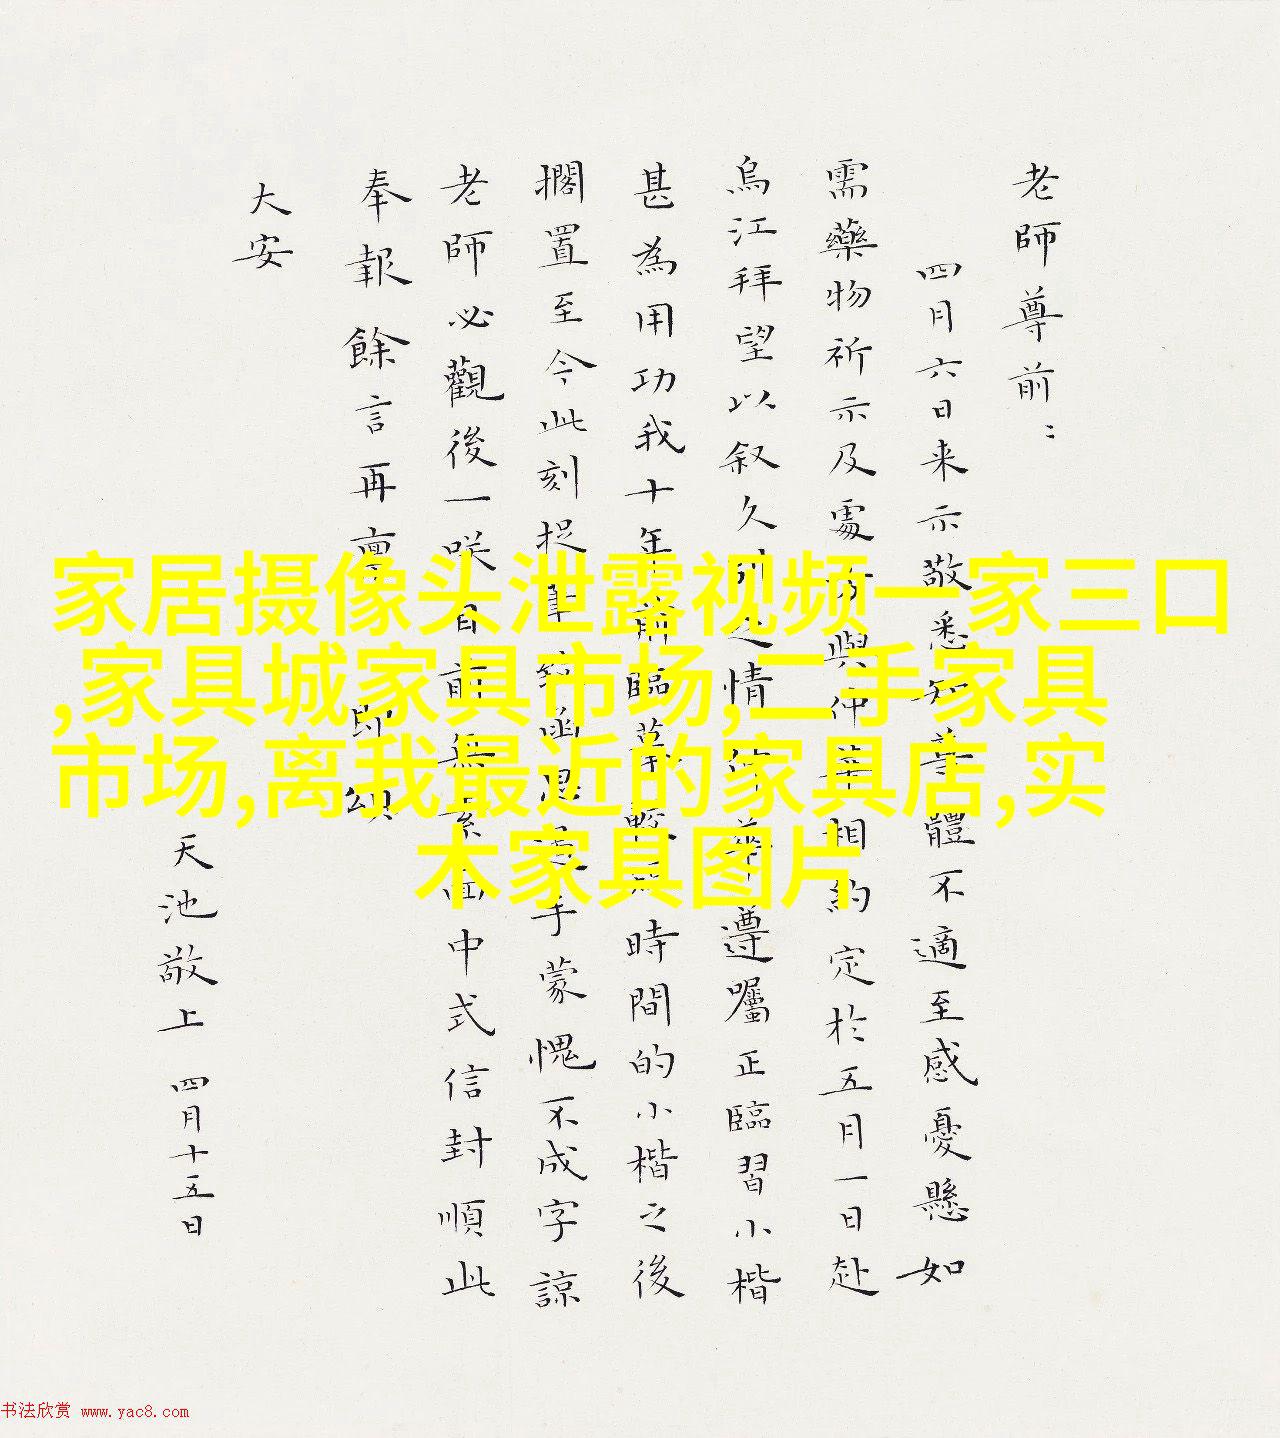 老師尊前：
四月六日来示敬悉知尊體不適至感憂懸如
需藥物祈示及處方與仲華相約定於五月一日赴
烏江拜望以叙久別之情仲華遵囑正臨習小楷
甚為用功我十年前臨摹較長時間的小楷之後
擱置至今此刻捉筆致函思遲手蒙愧不成字諒
老師必觀後一咲目前無素四中式信封順此
奉報餘言再稟
即頌
大安
天池敬上 四月十五日
家居摄像头泄露视频一家三口
,家具城家具市场,二手家具
市场,离我最近的家具店,实
木家具图片
书法欣赏 www.yac8.com